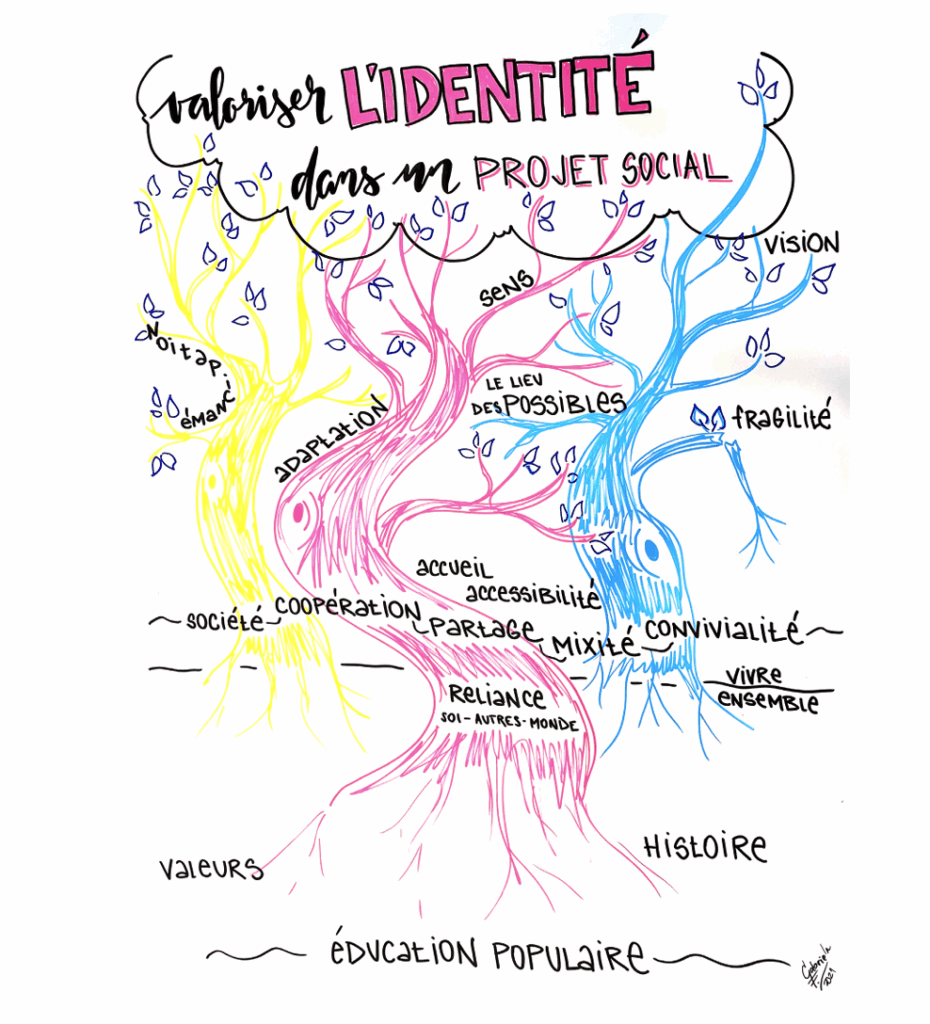 valoriser L'IDENTITÉ
dans un PROJET SOCIAL
VISION
SENS
émancipation
LE LIEU
DES POSSIBLES
fragilité
adaptation
accueil
accessibilité
société
COOPÉRATION
Partage
Mixité
CONVIVIALITÉ
VIVRE
ENSEMBLE
RELIANCE
SOI-AUTRES-MONDE
Histoire
Valeurs
éducation populaire
Gabriela
F. 2021